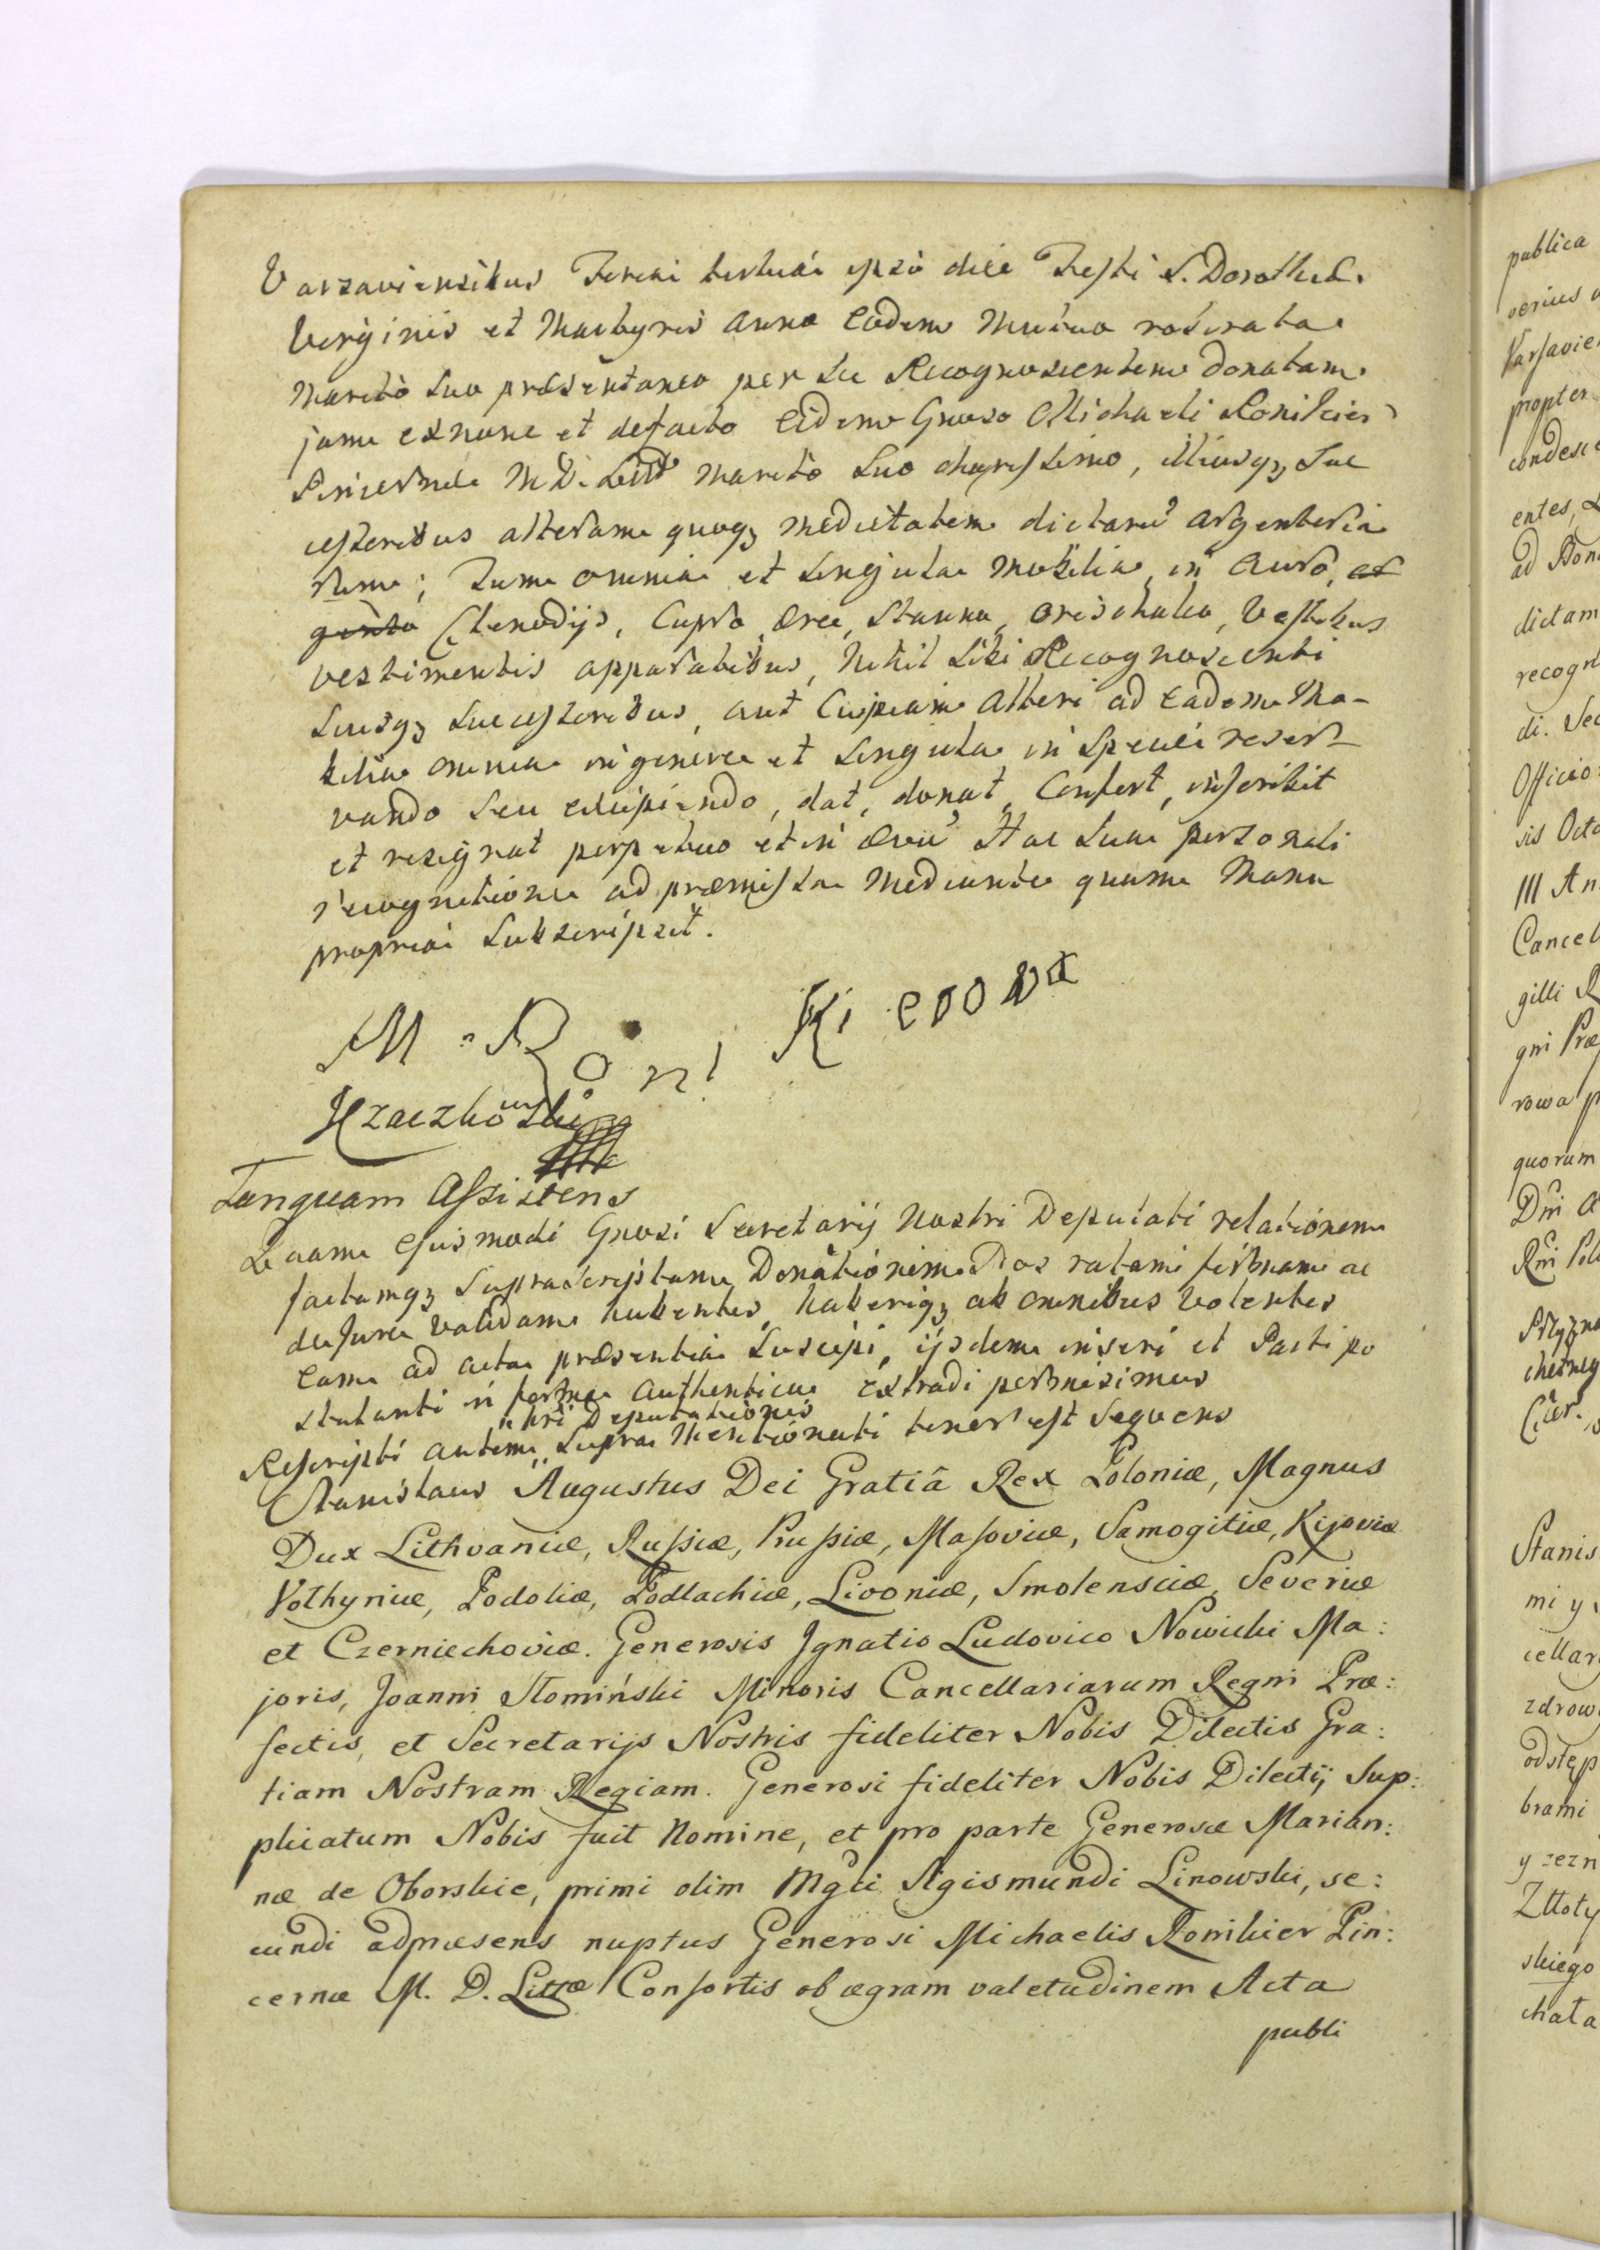 Varzaviensibus Feria tertia ipso die Festi S. Dorotheæ
Virginis et Martyris anno eodem mutuo roborata
Marito suo præsentaneo per se Recognoscentem donatam
jam ex nunc et defacto eidem Gnoso Michaeli Ronikier
Pincernæ M. D. Litt Marito suo charissimo, illiusqꝫ Suc
cessoribus alteram quoqꝫ medietatem dictarū argenteria
rum; Tum omnia et singula mobilia in auro, ar
gento Clenodijs, Cupro ære, Stanno, orichalco, Vestibus
vestimentis apparatibus, Nihil sibi Recognoscenti
Suisqꝫ Successoribus, aut Cuipiam alteri ad eadem Mo-
bilia omnia in genere et singula in Specie reser-
vando seu excipiendo, dat, donat, Confert, inscribit
et resignat perpetuo et in ævū Hac sua personali
recognitione ad præmissa mediante quam Manu
propria Subscripsit.
M. Roni Kierowa
Tanquam Assistens
Quam ejusmodi Gnosi Secretarij Nostri Deputati relationem
factamqꝫ Suprascriptam Donationem Nos ratam firmam ac
de Jure validam habentes, haberiqꝫ ab omnibus volentes
eam ad acta præsentia Suscipi, ijsdem inseri et Parti po
stulanti in forma authentica extradi permisimus
nri Deputationis
Rescripti autem Supra Mentionati tenor est Sequens
Stanislaus Augustus Dei Gratiâ Rex Poloniæ, Magnus
Dux Lithvaniæ, Russiæ, Prussiæ, Masoviæ, Samogitiæ, Kijoviæ
Volhyniæ, Podoliæ, Podlachiæ, Livoniæ, Smolensciæ, Severiæ
et Czerniechoviæ. Generosis Jgnatio Ludovico Nowicki Ma:
joris, Joanni Słomiński Minoris Cancellariarum Regni Præ:
fectis, et Secretarijs Nostris fideliter Nobis Dilectis Gra:
tiam Nostram Regiam. Generosi fideliter Nobis Dilectij Sup:
plicatum Nobis fuit Nomine, et pro parte Generosæ Marian:
næ de Oborskie, primi olim Mgci Sigismundi Linowski, se:
cundi adpræsens nuptus Generosi Michaelis Ronikier Pin:
cernæ M. D. Littæ Consortis ob ægram valetudinem Acta
publi
publica
Varsavie
propter
condesce
entes,
dictam
recogn
di.
Officio
sis Octa
III An
Cancel
gilli R
gni Præ
rowa p
quorum
Stanis
mi y
cellar
zdrow
odstęp
brami
y zezn
Złoty
skiego
chata